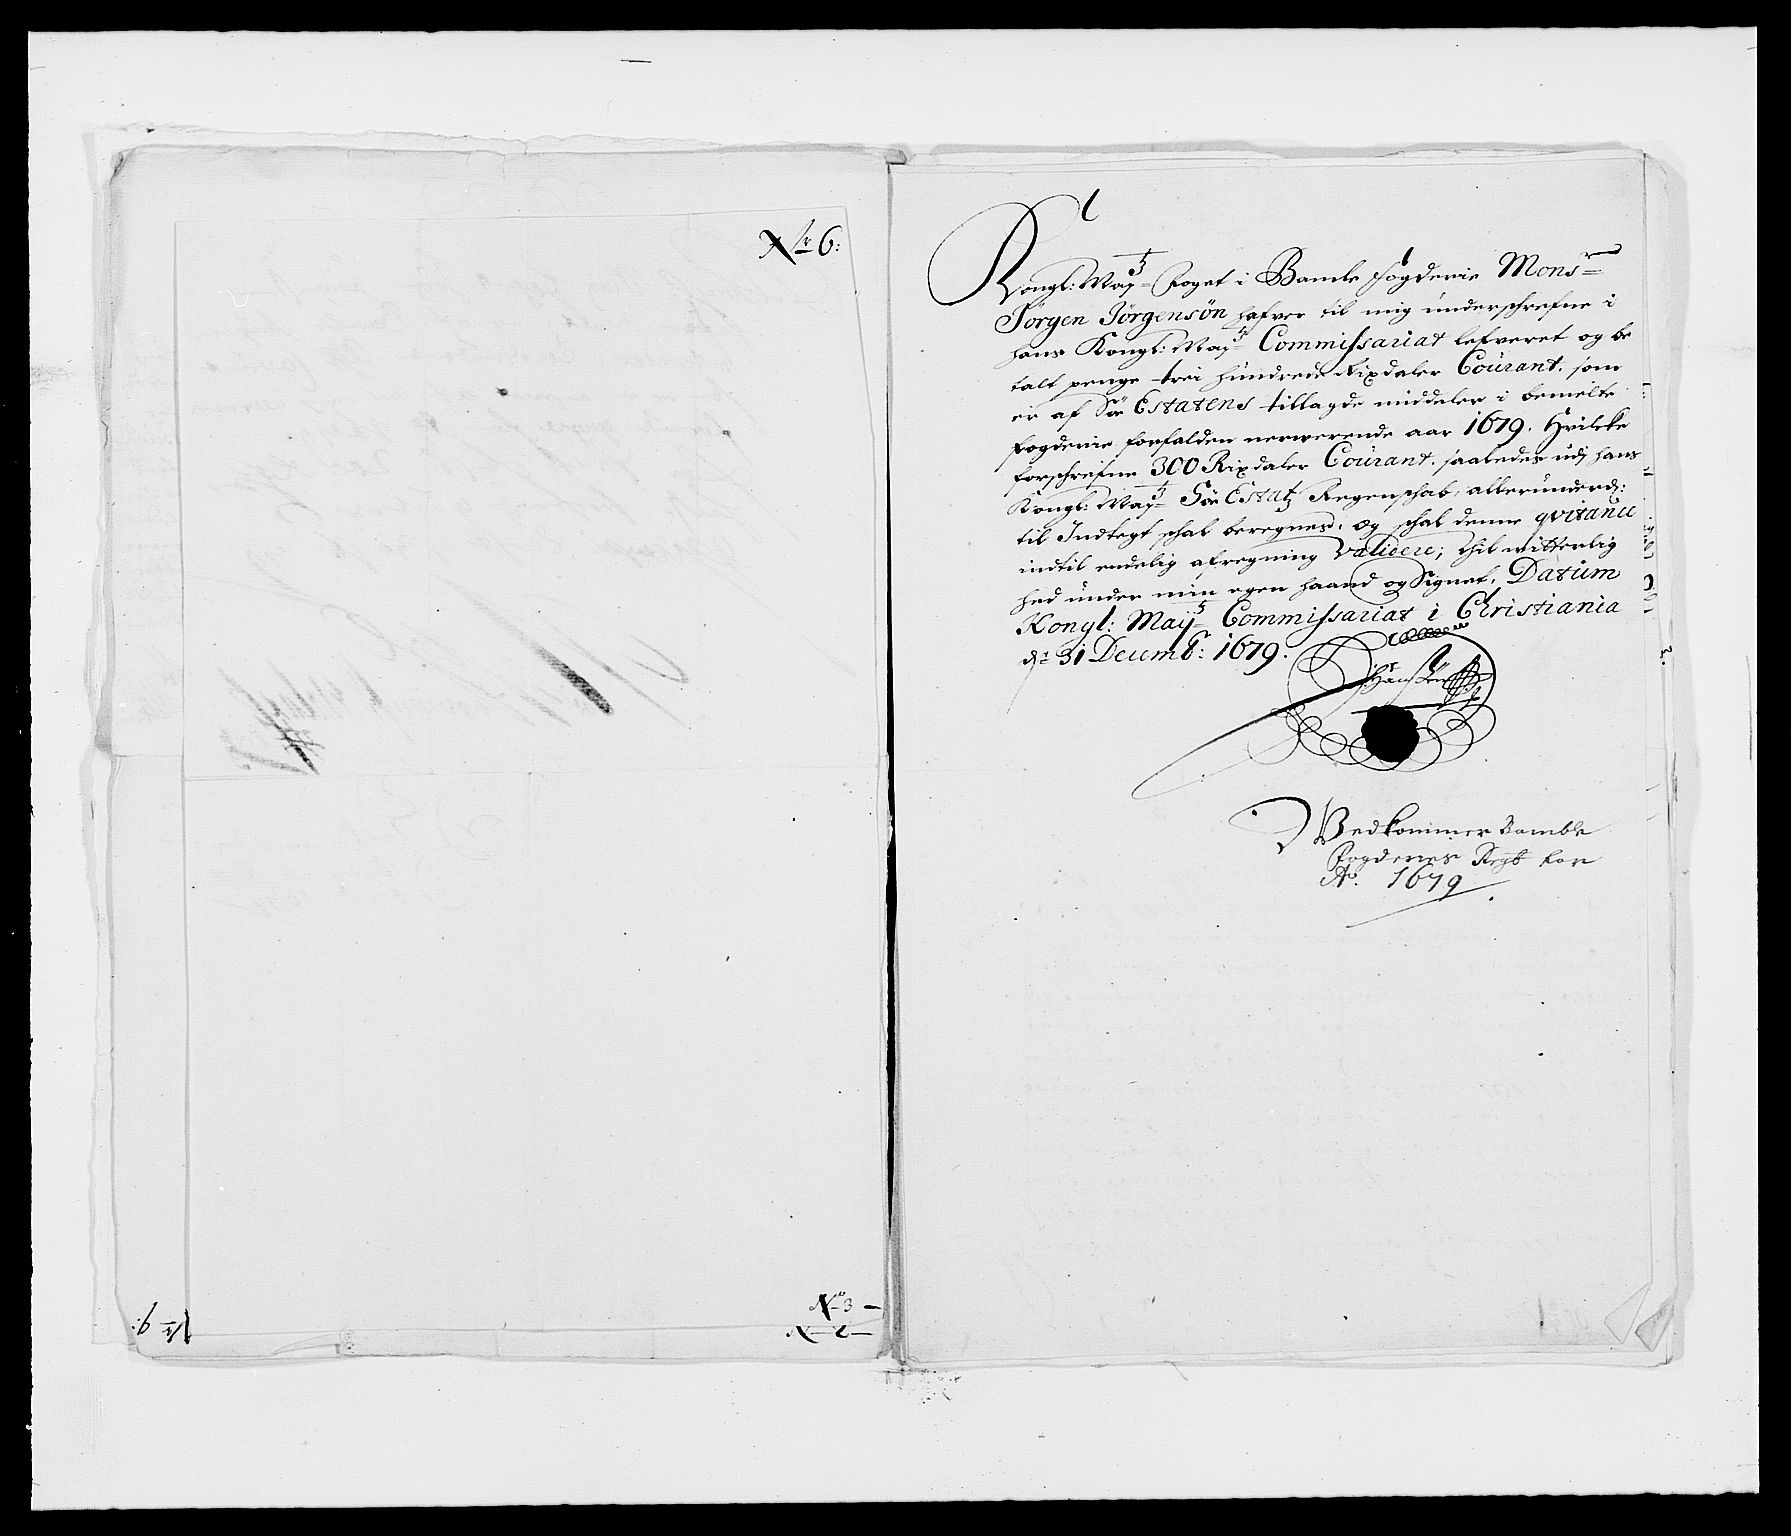 Nr 6:
No 3
N 2
Kongl: Maÿtz Foget i Bamble fogderie Monsr
Jörgen Jörgensön hafver til mig underschrefne i
hans Kongl: Maÿtz Commissariat lefveret og be
talt penge trei hundrede Rixdaler Courant. som
er af Söe Estatens tillagde middeler i bemelte
fogderie forfalden nerwerende aar 1679. Hvilcke
forschrefne 300 Rixdaler Courant. saaledes udj hans
Kongl: Maÿtz Söe Estatz Regenschab, allerunderd:
til Indtegt schal beregnes, og schal denne qvitance
indtil endelig afregning validere; Thil witterlig
hed under min egen haand og Signet. Datum
Kongl: Maÿtz Commissariat i Christiania
dn 31 Decemb: 1679.
Vedkommer Bamble
Fogderies Regsb for
Ao. 1679